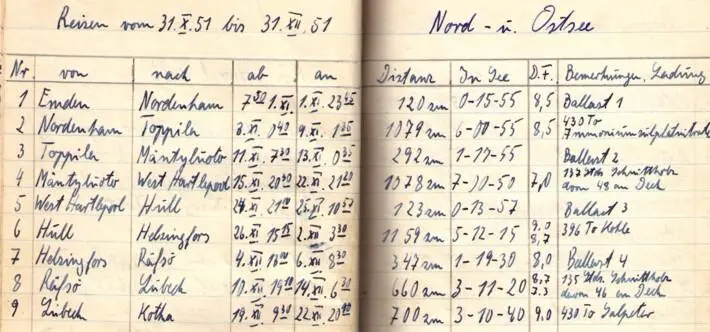 Reisen vom 31.X.51 bis 31.XII.51 Nord- u. Ostsee
Nr. von nach ab an Distanz In See D.F. Bemerkungen, Ladung
1 Emden Nordenham 7 50 1.XI. 1.XI. 23 45 120 sm 0-15-55 8,5 Ballast 1
2 Nordenham Toppila 3.XI. 0 40 9.XI. 1 35 1079 sm 6-00-55 8,5 430 To
Ammoniumsulfatnitrat
3 Toppila Mäntyluoto 11.XI. 7 30 13.XI. 0 35 292 sm 1-17-55 Ballast 2
4 Mäntyluoto West Hartlepool 15.XI. 20 30 22.XI. 21 20 1078 sm 7-00-50 7,0 137 Stds Schnittholz
davon 48 an Deck
5 West Hartlepool Hull 24.XI. 21 00 25.XI. 10 57 123 sm 0-13-57 Ballast 3
6 Hull Helsingfors 26.XI. 15 15 2.XII. 3 30 1159 sm 5-12-15 9,0 8,7 396 To Kohle
7 Helsingfors Räfsö 4.XII. 13 00 6.XII. 8 30 347 sm 1-19-30 8,0 Ballast 4
8 Räfsö Lübeck 10.XII. 19 10 14.XII. 6 30 660 sm 3-11-20 8,7 7.3 135 Stds. Schnittholz
davon 46 an Deck
9 Lübeck Kotka 19.XII. 9 30 22.XII. 20 10 700 sm 3-10-40 9,0 430 To Salpeter